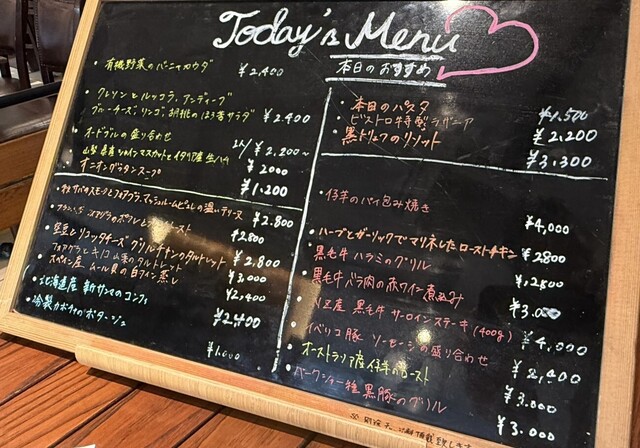 Today's Menu
本日のおすすめ
・有機野菜のバーニャカウダ ¥2,400
・クレソンとルッコラ、アンディーブ
ブルーチーズ、リンゴ、胡桃のほろ苦サラダ ¥2400
・オードブルの盛り合わせ ¥2,200~
山梨県産シャインマスカットとイタリア産生ハム ¥2000
オニオングラタンスープ ¥1,200
サバのスモークとフォアグラ、マッシュルームピュレの温いテリーヌ ¥2.800
¥2800
豆とリコッタチーズ グリルチキンのタルトレット ¥2,800
フォアグラとキノコ 山栗のタルトレット ¥3,000
スペイン産 ムール貝の白ワイン蒸し ¥2,400
・北海道産 新サンマのコンフィ ¥2,400
・冷製カボチャのポタージュ
¥1,000
・本日のパスタ ¥1,500
ビストロ牛特製ラザニア ¥2,200
黒トリュフのリゾット ¥3,300
・仔羊のパイ包み焼き ¥4,000
・ハーブとガーリックでマリネしたローストチキン ¥2800
・黒毛牛ハラミのグリル
・黒毛牛バラ肉の赤ワイン煮込み ¥3,000
・NZ産 黒毛牛 サーロインステーキ(400g) ¥4,000
・イベリコ豚 ソーセージの盛り合わせ ¥2,400
・オーストラリア産 仔羊のロースト ¥3,000
・バークシャー種 黒豚のグリル ¥3,000